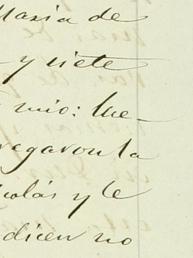 Maria de
y siete
mio: lue-
regaron la
colás y le
dicen no